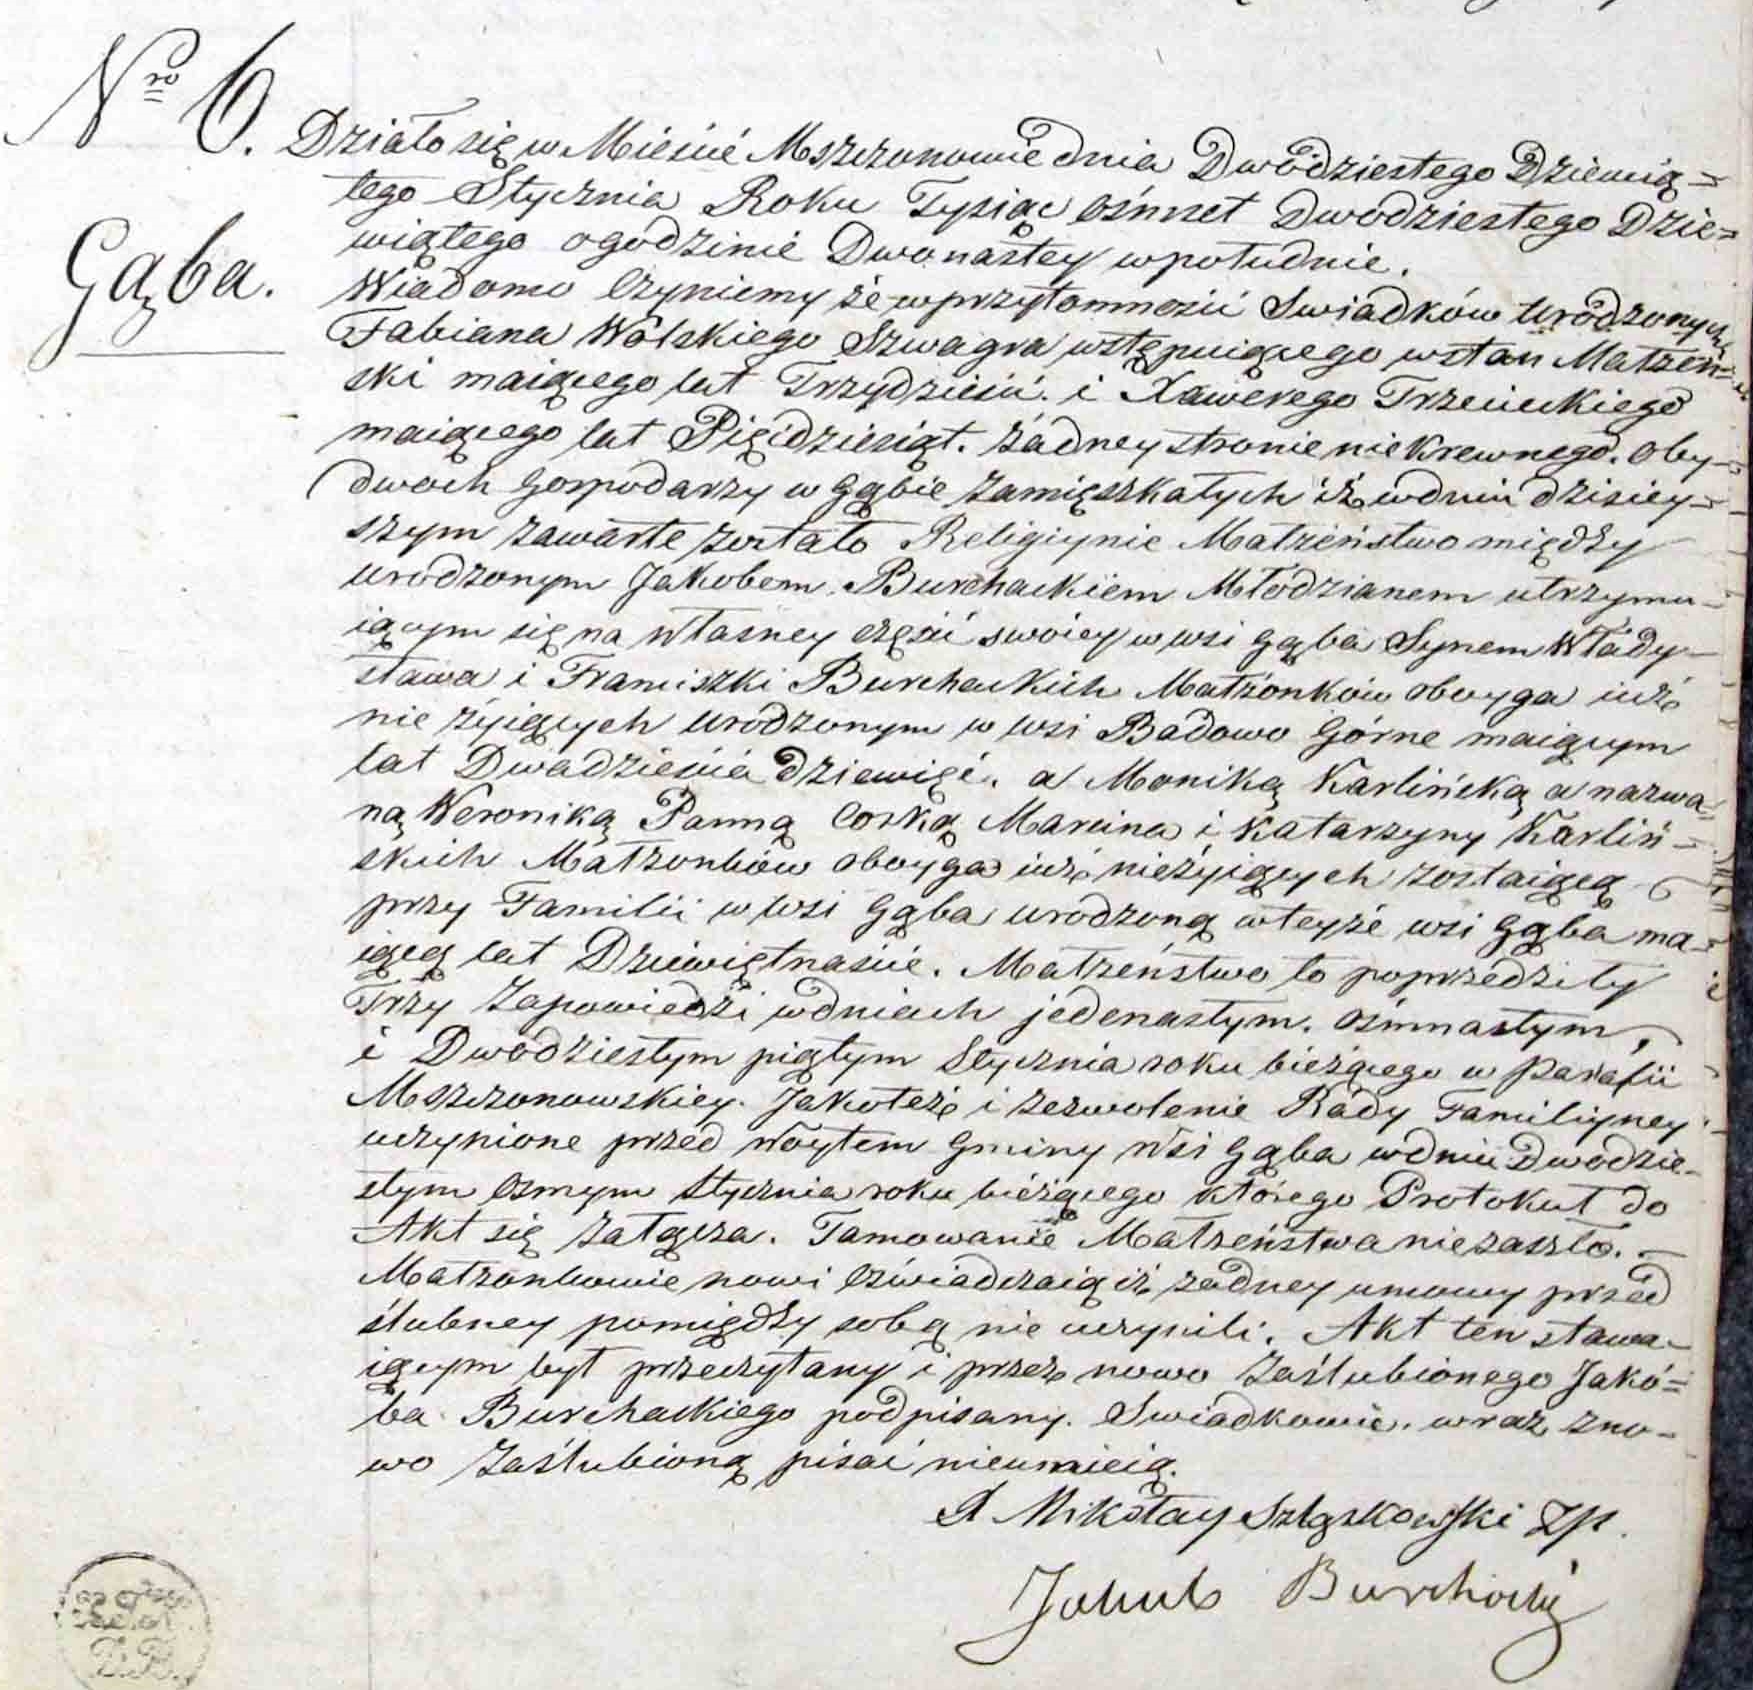 Nro 6.
Gąba.
Działo się w Mieście Mszczonowie dnia Dwódziestego Dziewią=
tego Stycznia Roku Tysiąc Ośmset Dwódziestego Dzie=
wiątego ogodzinie Dwonastey wpołudnie.
Wiadomo Czyniemy że wprzytomności Swiadków Urodzonych
Fabiana Wolskiego Szwagra wstępuiącego wstan Małżeń=
ski maiącego lat Trzydzieści. i Xawerego Trzecieckiego
maiącego lat Pięćdziesiąt. żadney stronie niekrewnego. oby-
dwóch Gospodarzy w Gąbie zamięszkałych iż wdniu dzisiey-
szym zawarte zostało Religiynie Małżeństwo między
urodzonym Jakobem Burchackiem Młodzianem utrzymu-
iącym się na własney części swoiey w wsi Gąba Synem Włady-
sława i Franciszki Burchackich Małżonków oboyga iuż
nie żyiących urodzonym w wsi Badowo Górne maiącym
lat Dwadzieścia dziewięć. a Moniką Karlińską a nazwa
ną Weroniką Panną Corką Marcina i Katarzyny Karliń-
skich Małżonków oboyga iuż nieżyiących zostaiącą
przy Familii w wsi Gąba urodzoną wteyże wsi Gąba ma
iącą lat Dziewiętnaście. Małżeństwo to poprzedziły
Trzy Zapowiedzi wdniach jedenastym. ośmnastym,
i Dwódziestym piątym Stycznia roku bieżącego w Parafii
Mszczonowskiey. Jakoteż i zezwolenie Rady Familiyney
uczynione przed Woytem Gminy Wsi Gąba wdniu Dwodzie-
stym Osmym Stycznia roku bieżącego którego Protokuł do
Akt się załącza. Tamowanie Małżeństwa niezaszło.
Małżonkowie nowi Oświadczaią iż żadney umowy przed
ślubney pomiędzy sobą nie uczynili. Akt ten stawa-
iącym był przeczytany i przez nowo zaślubionego Jakó=
ba Burchackiego podpisany. Swiadkowie. wraz zno-
wo zaślubioną pisać nieumieią.
X Mikołay Szląskowski
Jakub Burchacki